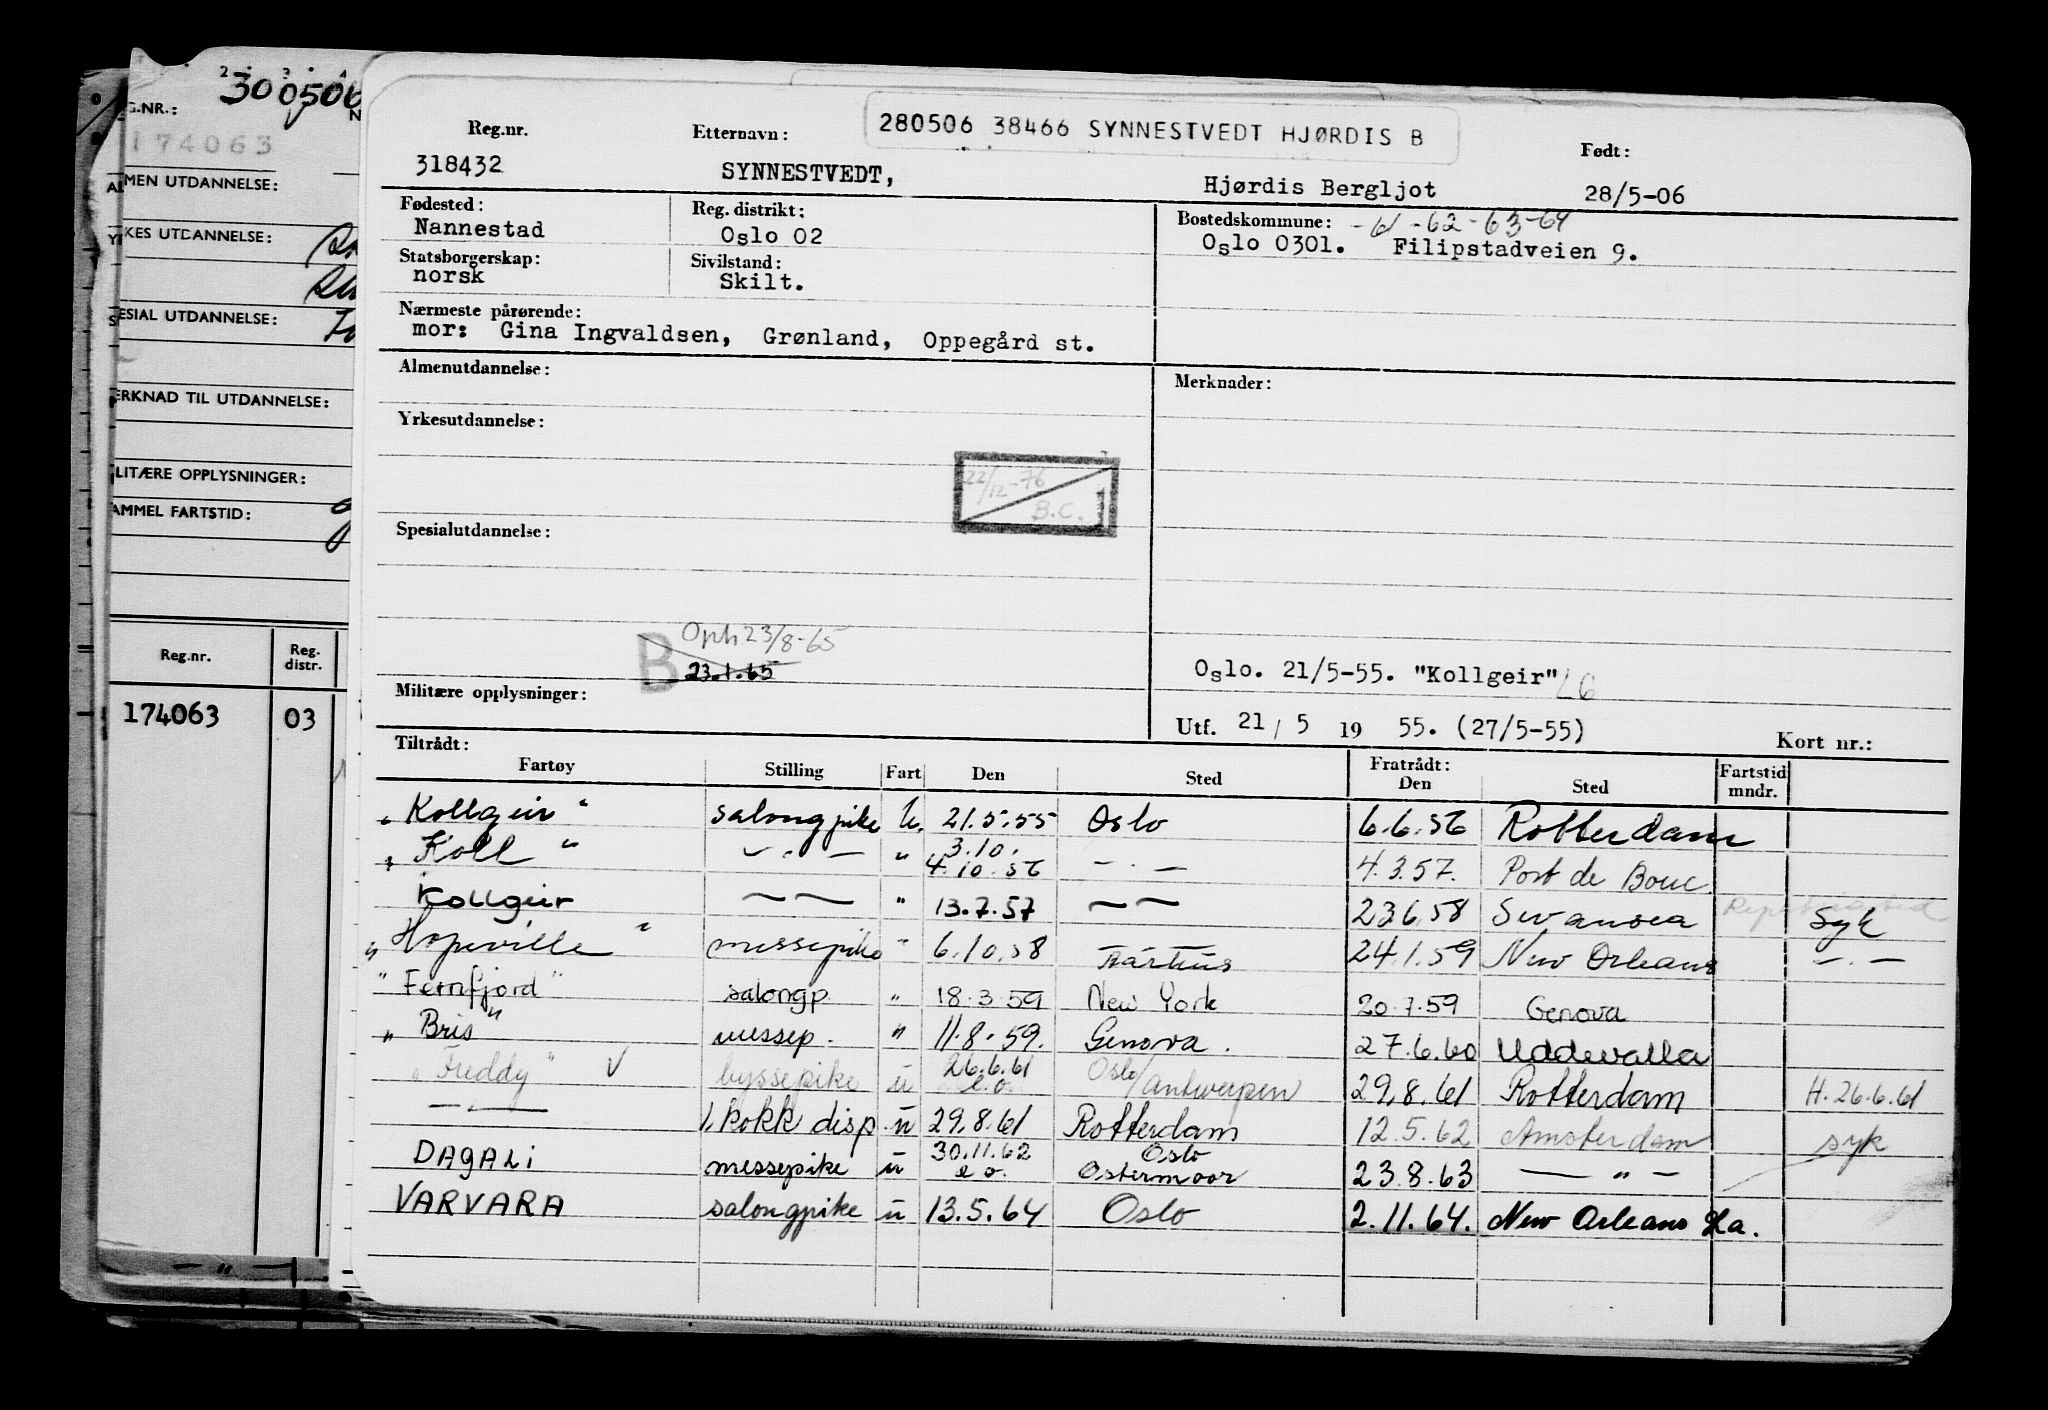 300506
G.NR.:
N
174063
MEN UTDANNELSE:
KES UTDANNELSE:
ESIAL UTDANNELSE:
ERKNAD TIL UTDANNELSE:
LITÆRE OPPLYSNINGER:
AMMEL FARTSTID:
Reg.nr. Reg. distr.
174063 03
— " —
280506 38466 SYNNESTVEDT HJØRDIS B
Reg.nr. Etternavn: Født:
318432 SYNNESTVEDT, Hjørdis Bergljot 28/5-06
Fødested: Reg. distrikt: Bostedskommune: -61-62-63-64
Nannestad Oslo 02 Oslo 0301. Filipstadveien 9.
Statsborgerskap: Sivilstand:
norsk Skilt.
Nærmeste pårørende:
mor: Gina Ingvaldsen, Grønland, Oppegård st.
Almenutdannelse: Merknader:
Yrkesutdannelse:
22/12-76
B.C.
Spesialutdannelse:
Oph 23/8-65
B 23.1.65
Oslo. 21/5-55. "Kollgeir"
Militære opplysninger:
Utf. 21/5 19 55. (27/5-55) Kort nr.:
Tiltrådt: Fratrådt:
Fartøy Stilling Fart Den Sted Den Sted Fartstid mndr.
"Kollgeir" salongpike U. 21.5.55 Oslo 6.6.56 Rotterdam
"Koll" — " — " 3.10. 4.10.56 — . — 4.3.57. Port de Bouc
Kollgeir — — " 13.7.57 — — 23.6.58 Swansea Syk
"Hopeville" messepike " 6.10.58 Aarhus 24.1.59 New Orleans — . —
"Fernfjord" salongp. " 18.3.59 New York 20.7.59 Genova
"Bris" messep. " 11.8.59. Genova. 27.6.60 Uddevalla
"Freddy" V byssepike u 26.6.61 e.o. Oslo/Antwerpen 29.8.61 Rotterdam H. 26.6.61
— " — 1. kokk disp. u 29.8.61 Rotterdam 12.5.62 Amsterdam syk
DAGALI messepike u 30.11.62 e.o. Oslo Ostermoor 23.8.63 — " —
VARVARA salongpike u 13.5.64 Oslo 2.11.64. New Orleans La.